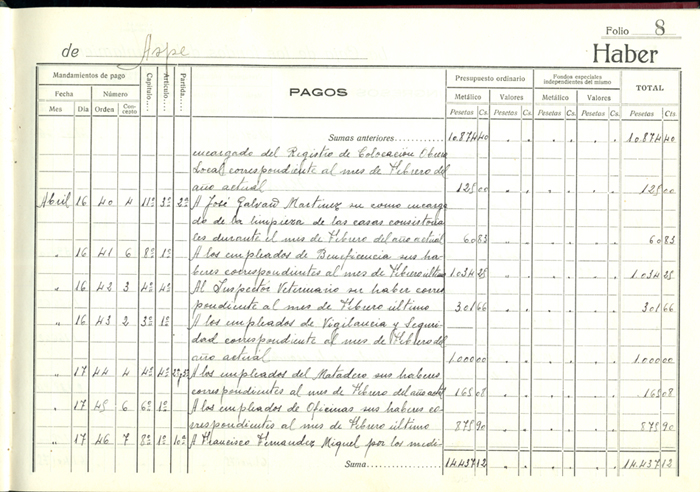 Folio 8
de Aspe Haber
Mandamientos de pago Capítulo Artículo Partida PAGOS Presupuesto ordinario Fondos especiales independientes del mismo TOTAL
Fecha Número Metálico Valores Metálico Valores
Mes Día Orden Concepto Pesetas Cs. Pesetas Cs. Pesetas Cs. Pesetas Cs. Pesetas Cts
Sumas anteriores 10.874 40 " " " " " " 10.874 40
encargado del Registro de Colocación Obrera
Local correspondiente al mes de Febrero del
año actual 125 00 " " " " " " 125 00
Abril 16 40 4 11º 3º 2ª A José Galvañ Martinez su como encarga
do de la limpieza de las casas consistoria
les durante el mes de Febrero del año actual 60 83 " " " " " " 60 83
" 16 41 6 8º 1º A los empleados de Beneficencia sus ha
beres correspondientes al mes de Febrero último 1.034 25 " " " " " " 1.034 25
" 16 42 3 4º 4º Al Inspector Veterinario su haber corres
pondiente al mes de Febrero último 301 66 " " " " " " 301 66
" 16 43 2 3º 1º A los empleados de Vigilancia y Seguri
dad correspondiente al mes de Febrero del
año actual 1.000 00 " " " " " " 1.000 00
" 17 44 4 4º 4º A los empleados del Matadero sus haberes
correspondientes al mes de Febrero del año actual 165 08 " " " " " " 165 08
" 17 45 6 6º 1º A los empleados de Oficinas sus haberes co
rrespondientes al mes de Febrero último 875 90 " " " " " " 875 90
" 17 46 7 8º 1º 10ª A Francisco Fernandez Miguel por los medi
Suma 14.437 12 " " " " " " 14.437 12